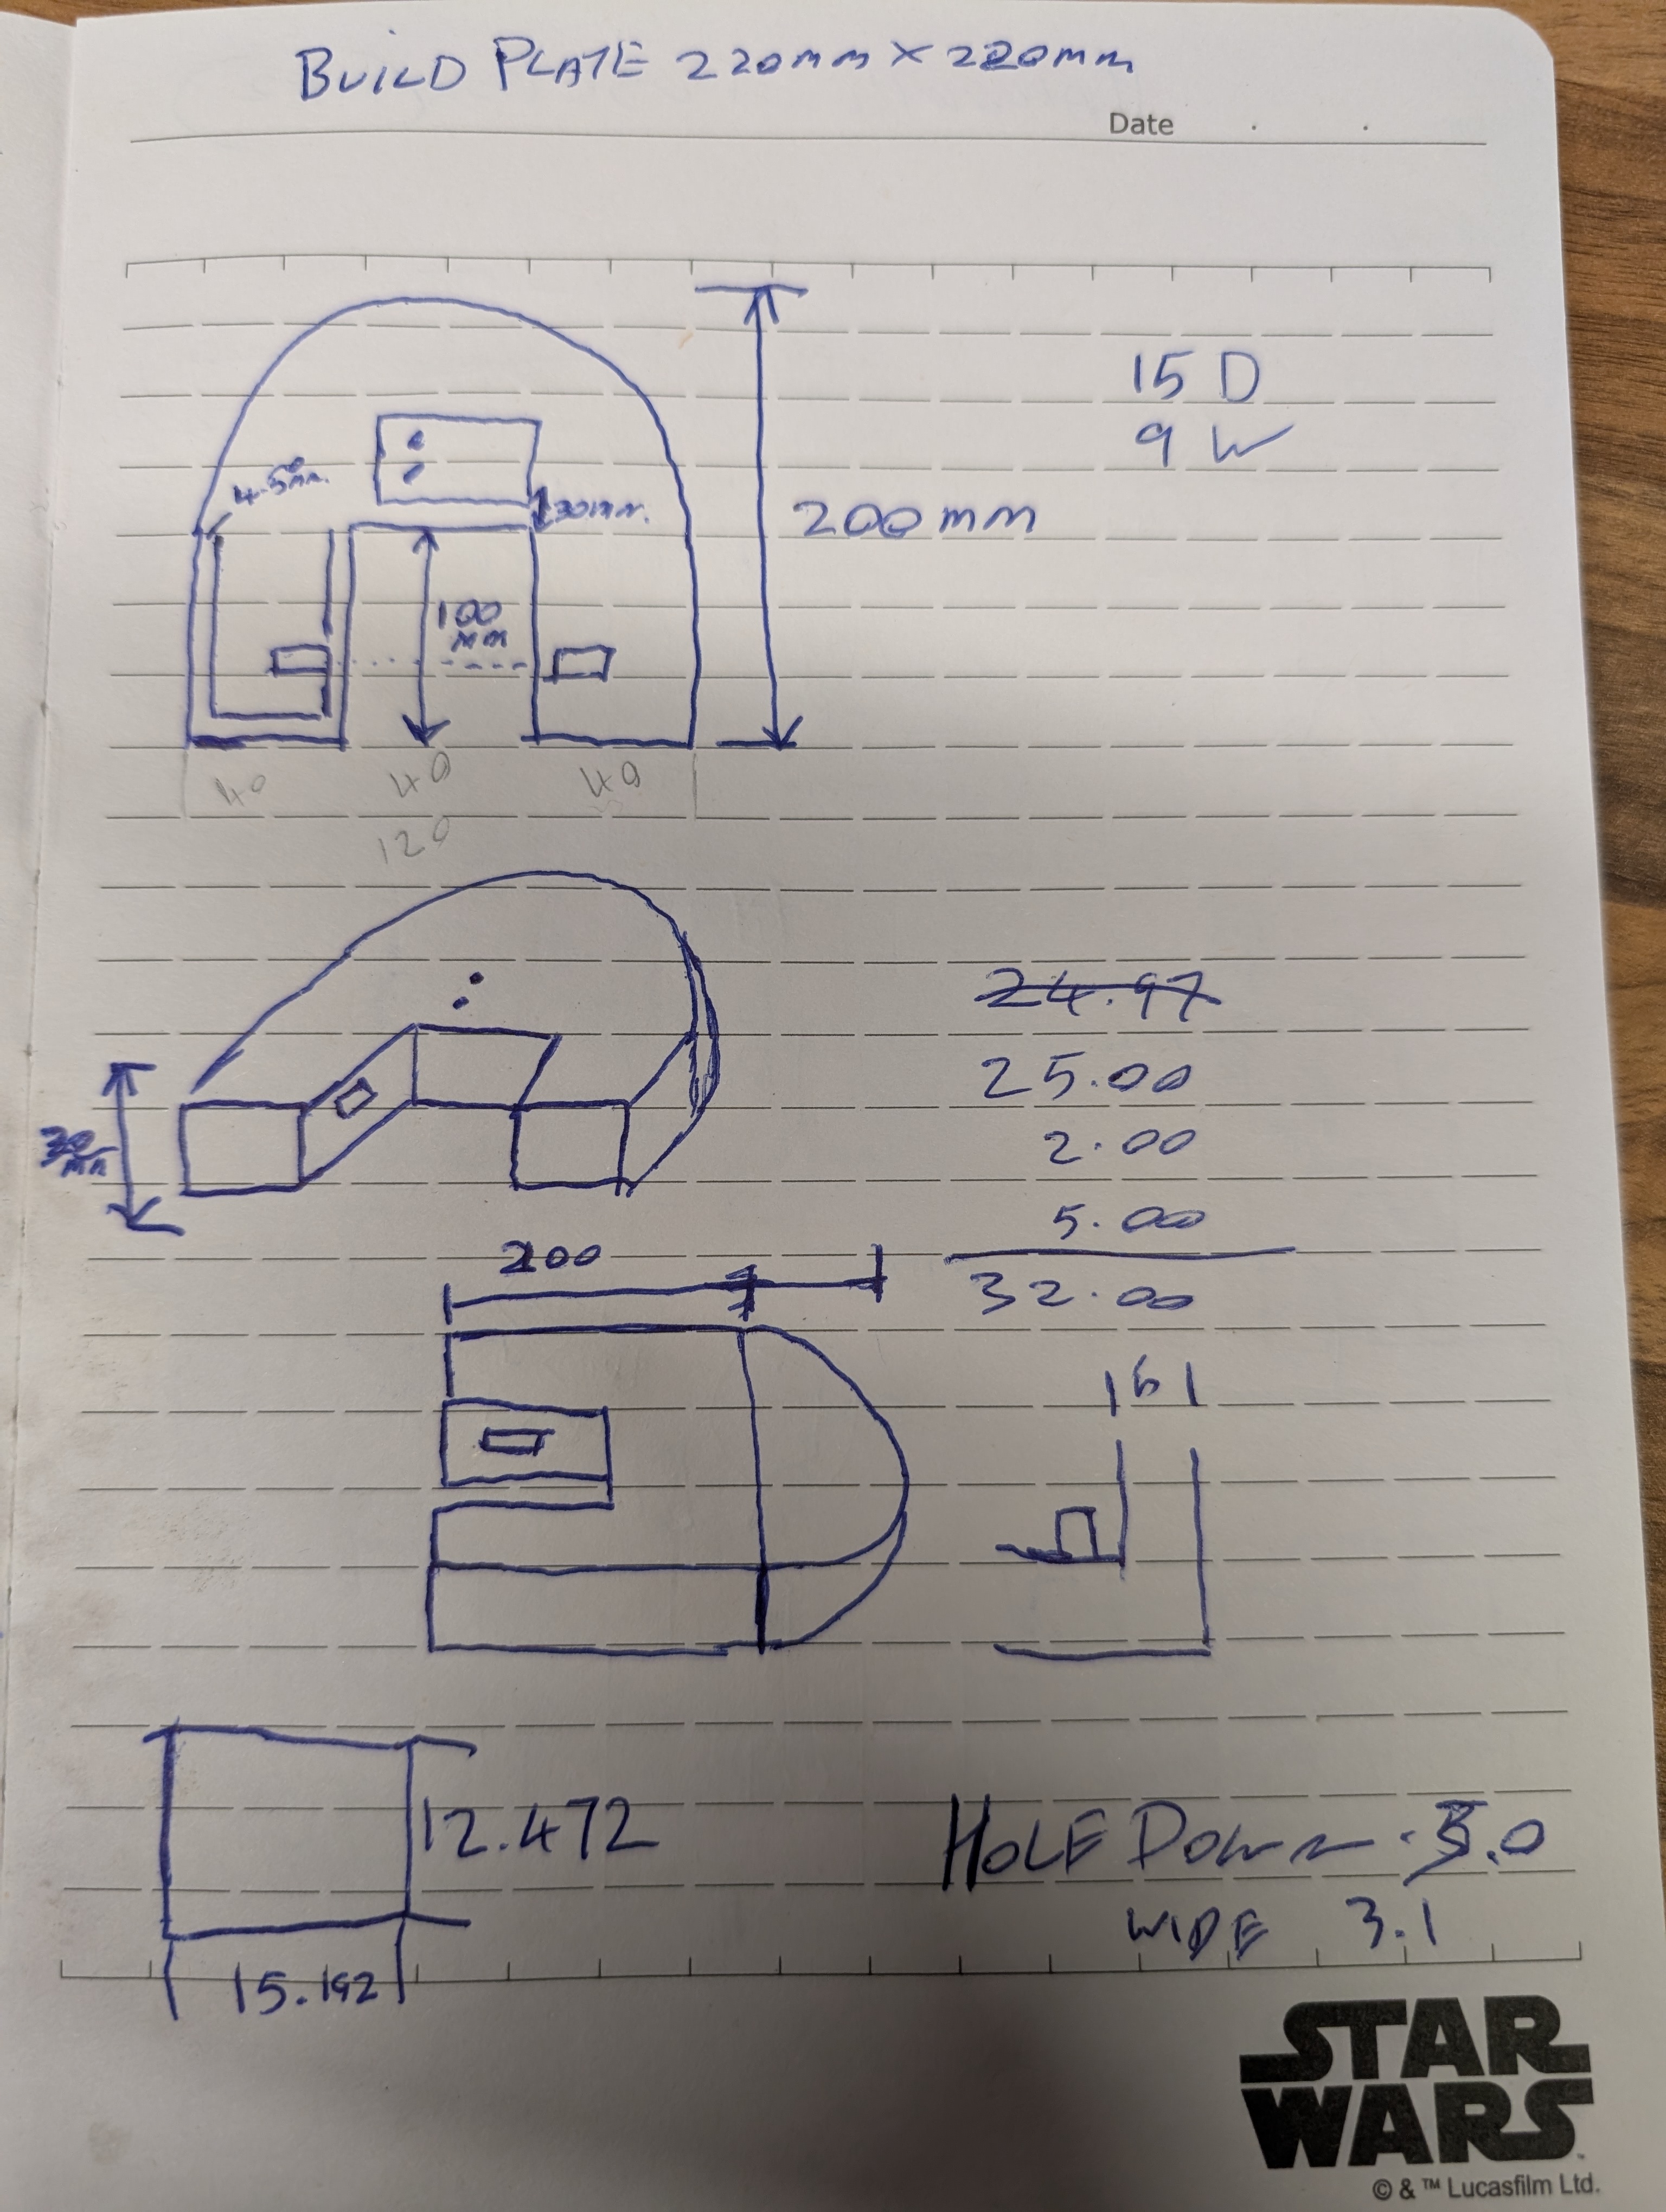 BUILD PLATE 220mm X 220mm
Date . .
15 D
9 W
4.5mm.
30mm.
200mm
100
mm
40 40 40
120
24.97
25.00
30
mm
2.00
5.00
200
32.00
161
12.472
HOLE DOWN 5.0
WIDE 3.1
15.192
STAR
WARS
© & ™ Lucasfilm Ltd.